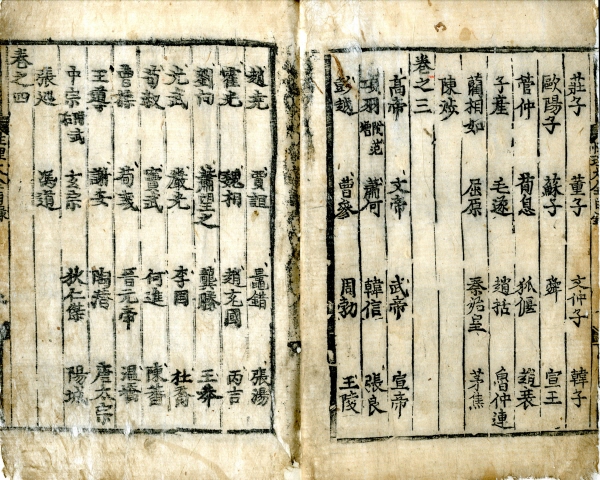 莊子 董子 文仲子 韓子
歐陽子 蘇子 舜 宣王
管仲 荀息 狐偃 趙衰
子產 毛遂 趙括 魯仲連
藺相如 屈原 秦始皇 茅焦
陳涉
卷之三
高帝 文帝 武帝 宣帝
項羽 蕭何 韓信 張良
彭越 曹參 周勃 王陵
趙堯 賈誼 鼂錯 張湯
霍光 魏相 趙充國 丙吉
劉向 蕭望之 龔勝 王莽
光武 嚴光 李固 杜喬
荀淑 竇武 何進 陳蕃
曹操 荀彧 晉元帝 溫嶠
王導 謝安 陶潛 唐太宗
中宗 玄宗 狄仁傑 陽城
張巡 馮道
卷之四